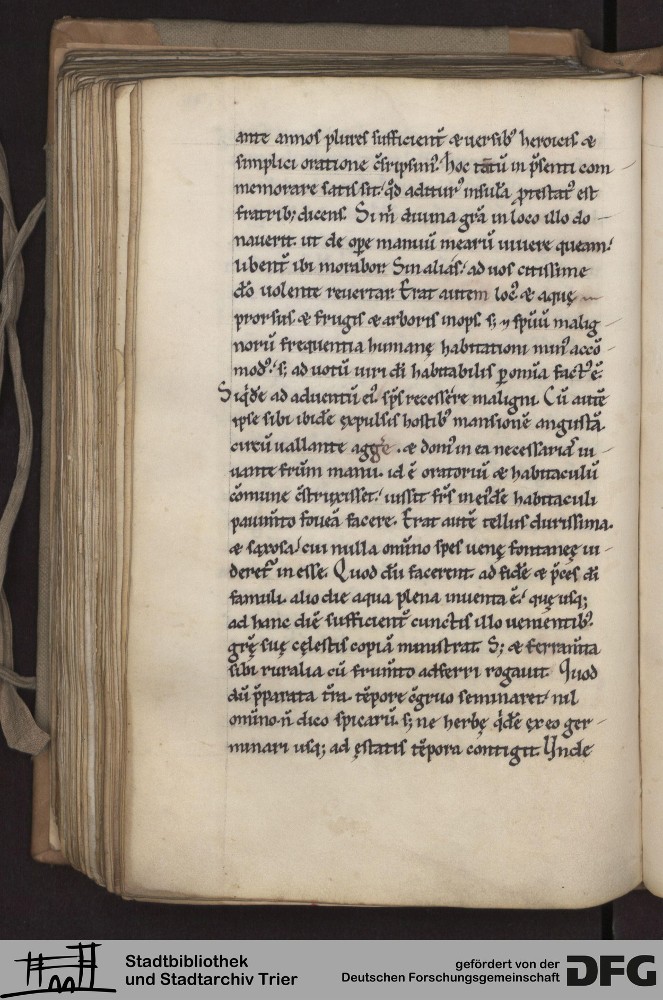 ante annos plures sufficient̄ & uersib' heroicis &
simplici oratione c̄scripsim'. hoc tātū in p̄senti com
memorare satis sit. qd̄ aditur' insulā protestat' est
fratrib; dicens. Si m̄ diuina grā in loco illo do
nauerit. ut de ope manuū mearū uiuere queam.
libent̄ ibi morabor. Sin alias. ad uos citissime
dō uolente reuertar. Erat autem loc' & aquę
prorsus & frugis & arboris inops. s; & spūū malig
norū frequentia humanę habitationi min' accō
mod'. s; ad uotū uiri dī habitabilis p om̄ia fact' ē.
Siqđe ad aduentū ei' sps recessere maligni. Cū autē
ipse sibi ibidē expulsis hostib' mansionē angustā
circūuallante aggere & domos in ea necessarias iu
uante fratrum manu. id ē oratoriū & habitaculū
cōmune c̄struxisset. iussit frs̄ in eiusdē habitaculi
pauim̄to foueā facere. Erat autē tellus durissima.
& saxosa. cui nulla om̄ino spes uenę fontanęę ui
deret̄ inesse. Quod dū facerent. ad fidē & p̄ces dī
famuli. alio die aqua plena inuenta ē. quę usq;
ad hanc diē sufficient̄ cunctis illo uenientib'.
grę̄ suę cęlestis copiā ministrat. S; & ferram̄ta
sibi ruralia cū frum̄to adferri rogauit. Quod
dū p̄parata t̄ra tēpore c̄gruo seminaret. nil
om̄ino. n̄ dico spicarū. s; ne herbę qđe ex eo ger
minari usq; ad ęstatis tēpora contigit. Unde
Stadtbibliothek
und Stadtarchiv Trier
gefördert von der
Deutschen Forschungsgemeinschaft
DFG